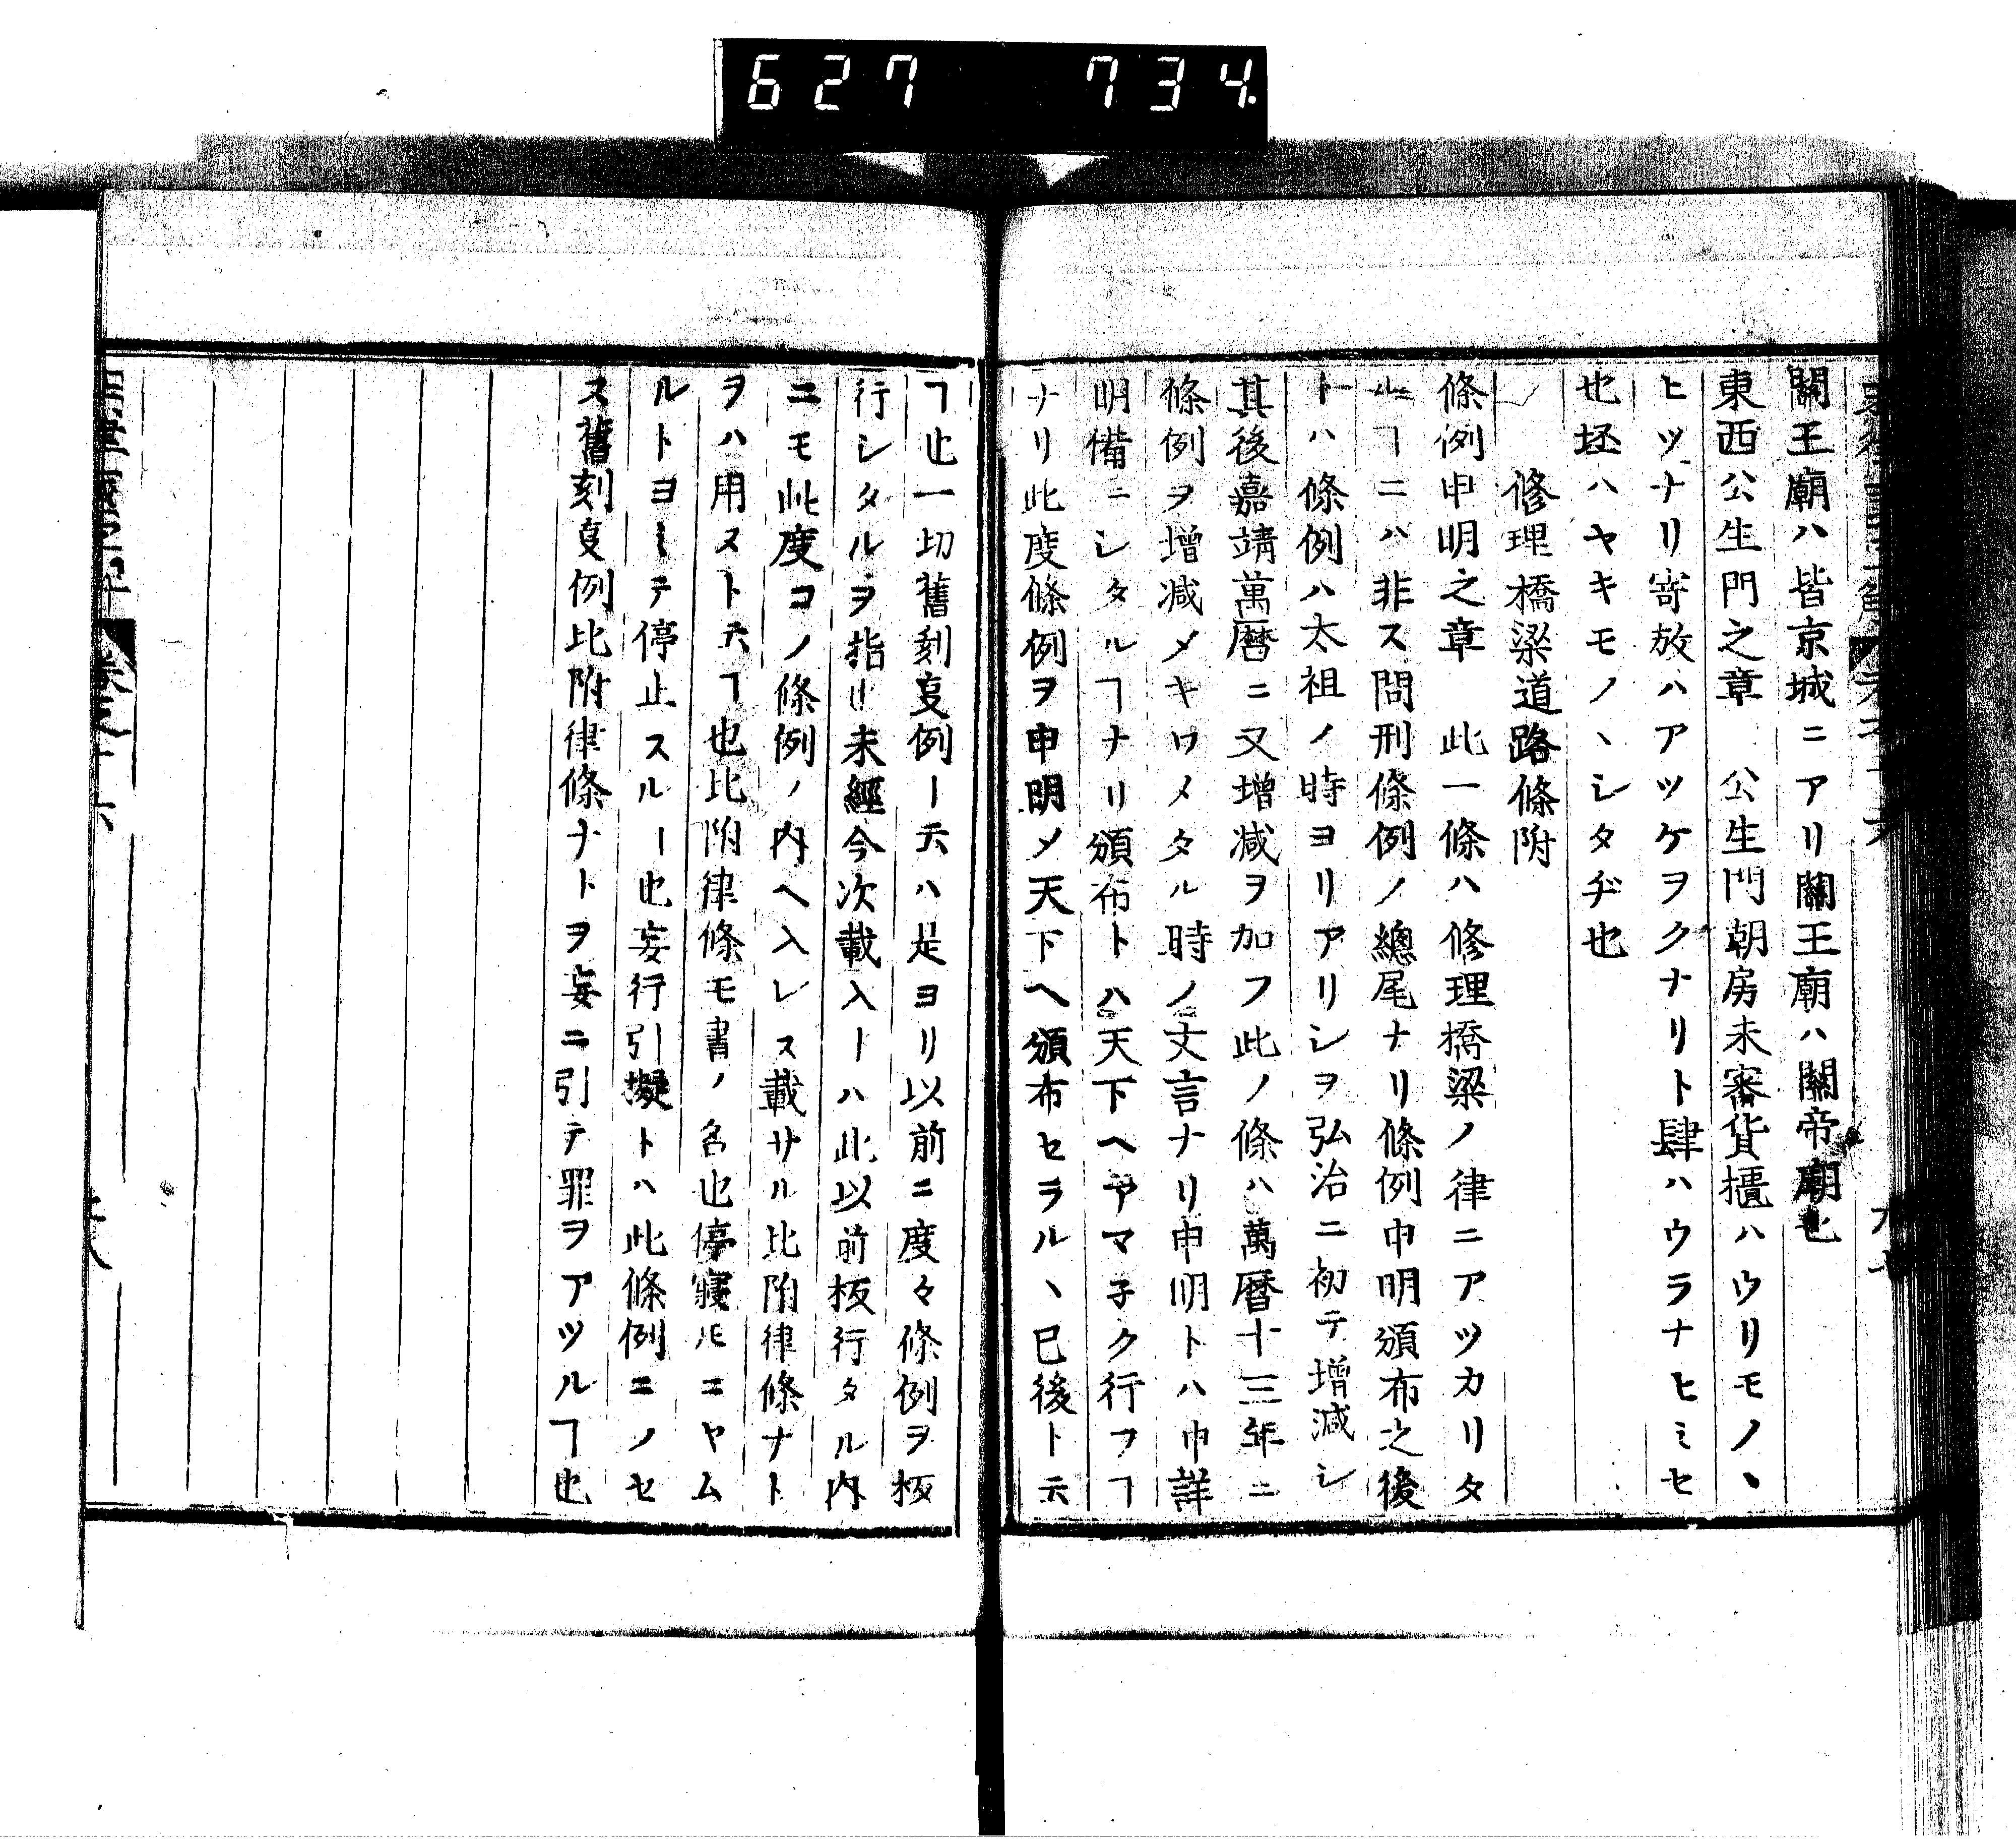 627 734
關王廟ハ皆京城ニアリ關王廟ハ關帝廟也
東西公生門之章 公生門朝房未審貨櫃ハウリモノヽ
ヒツナリ寄放ハアツケヲクナリト肆ハウラナヒミセ
也坯ハヤキモノヽシタヂ也
修理橋梁道路條附
條例申明之章 此一條ハ修理橋梁ノ律ニアツカリタ
此ヿニハ非ス問刑條例ノ總尾ナリ條例申明頒布之後
トハ條例ハ太祖ノ時ヨリアリシヲ弘治ニ初テ增減シ
其後嘉靖萬曆ニ又增減ヲ加フ此ノ條ハ萬曆十三年ニ
條例ヲ增減メキワメタル時ノ文言ナリ申明トハ申詳
明備ニシタルヿナリ頒布トハ天下ヘアマ子ク行フヿ
ナリ此度條例ヲ申明メ天下ヘ頒布セラルヽ已後ト云
ヿ也一切舊刻㕝例ート云ハ是ヨリ以前ニ度々條例ヲ板
行シタルヲ指也未經今次載入ートハ此以前板行タル内
ニモ此度コノ條例ノ内ヘ入レス載サル比附律條ナト
ヲハ用ストムヿ也比附律條モ書ノ名也停寢ルモニヤム
ルトヨミテ停止スルー也妄行引擬トハ此條例ニノセ
ス舊刻㕝例比附律條ナトヲ妄ニ引テ罪ヲアツルヿ也